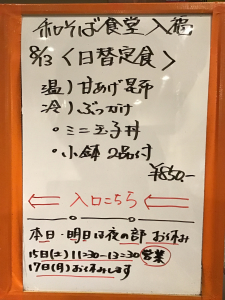 和そば食堂 入福
8/13 〈日替定食〉
温）甘あげ昆布
冷）ぶっかけ
・ミニ玉子丼
・小鉢2品付
¥850.-
入口こちら
本日・明日は夜の部 お休み
15日(土) 11:30-13:30 営業
17日(月)お休みします